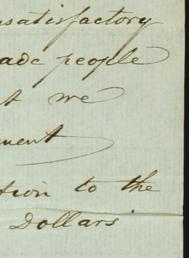 nsatisfactory
ade people
t we
ment
tion to the
Dollars